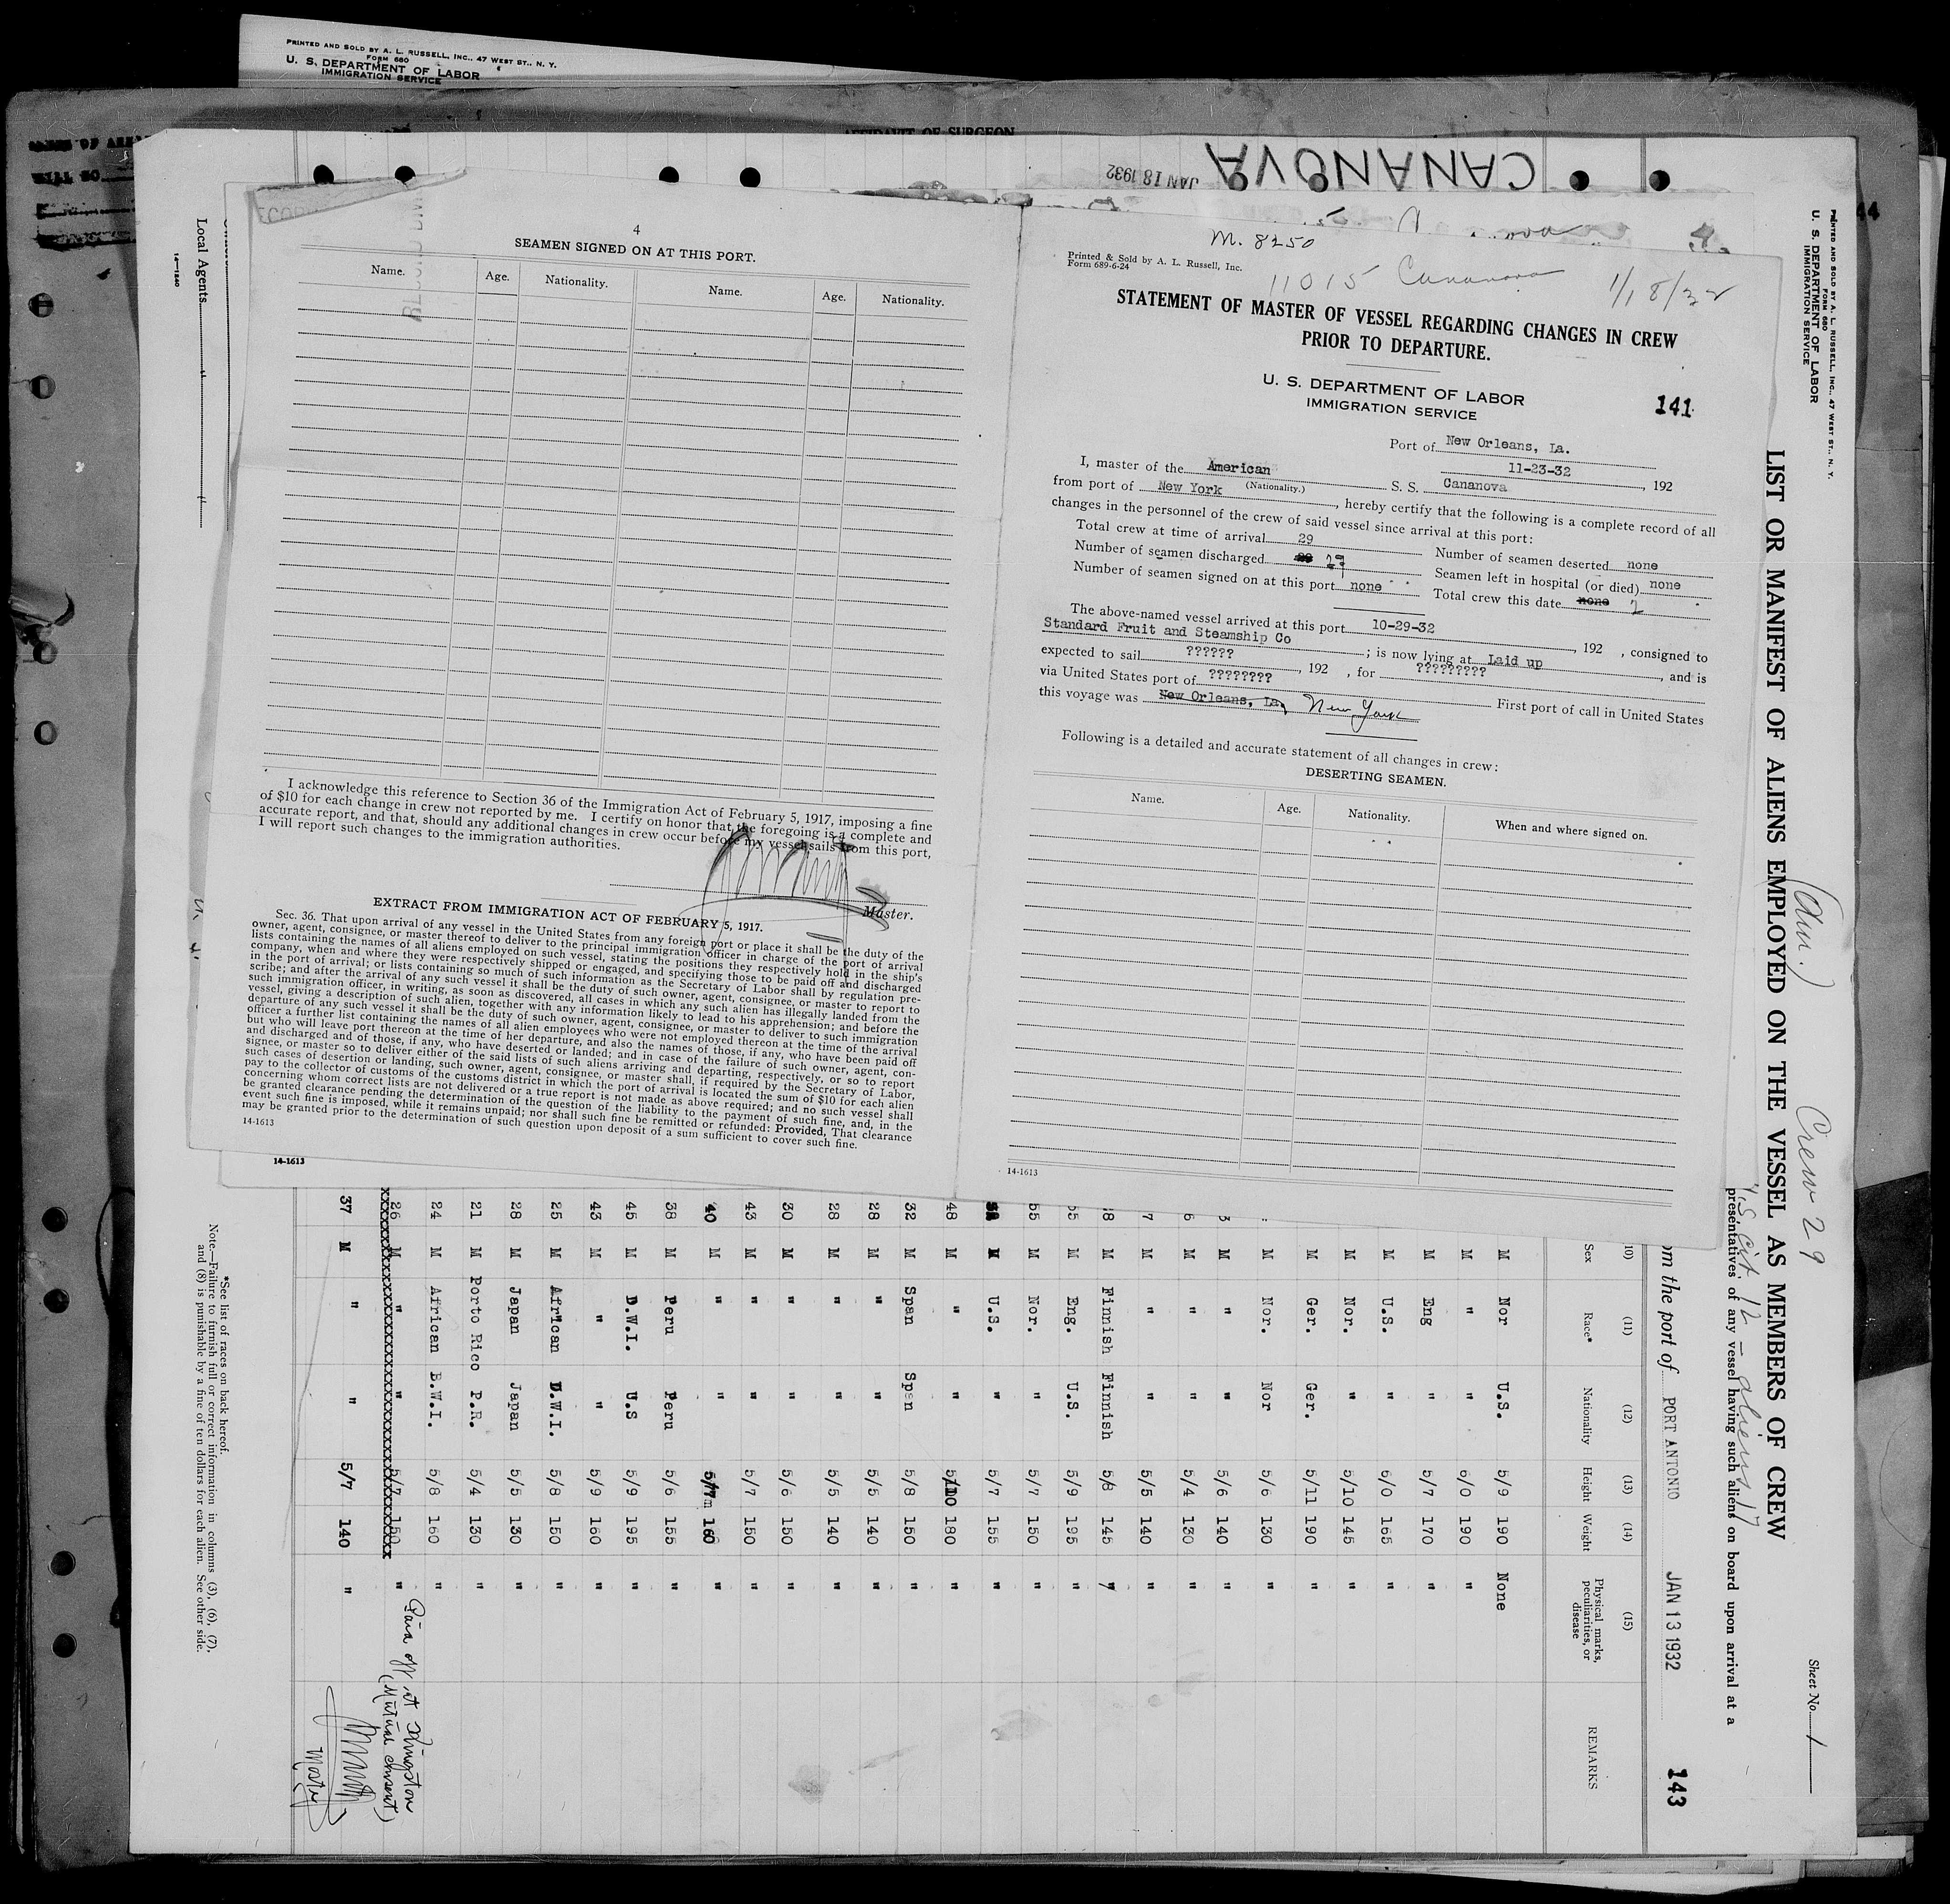 PRINTED AND SOLD BY A. L. RUSSELL, INC., 47 WEST ST., N. Y.
FORM 680
U. S. DEPARTMENT OF LABOR
IMMIGRATION SERVICE
AFFIDAVIT OF SURGEON
CANANOVA
JAN 18 1932
44
4
SEAMEN SIGNED ON AT THIS PORT.
Name. Age. Nationality. Name. Age. Nationality.
I acknowledge this reference to Section 36 of the Immigration Act of February 5, 1917, imposing a fine
of $10 for each change in crew not reported by me. I certify on honor that the foregoing is a complete and
accurate report, and that, should any additional changes in crew occur before my vessel sails from this port,
I will report such changes to the immigration authorities.
Master.
EXTRACT FROM IMMIGRATION ACT OF FEBRUARY 5, 1917.
Sec. 36. That upon arrival of any vessel in the United States from any foreign port or place it shall be the duty of the
owner, agent, consignee, or master thereof to deliver to the principal immigration officer in charge of the port of arrival
lists containing the names of all aliens employed on such vessel, stating the positions they respectively hold in the ship's
company, when and where they were respectively shipped or engaged, and specifying those to be paid off and discharged
in the port of arrival; or lists containing so much of such information as the Secretary of Labor shall by regulation pre-
scribe; and after the arrival of any such vessel it shall be the duty of such owner, agent, consignee, or master to report to
such immigration officer, in writing, as soon as discovered, all cases in which any such alien has illegally landed from the
vessel, giving a description of such alien, together with any information likely to lead to his apprehension; and before the
departure of any such vessel it shall be the duty of such owner, agent, consignee, or master to deliver to such immigration
officer a further list containing the names of all alien employees who were not employed thereon at the time of the arrival
but who will leave port thereon at the time of her departure, and also the names of those, if any, who have been paid off
and discharged and of those, if any, who have deserted or landed; and in case of the failure of such owner, agent, con-
signee, or master so to deliver either of the said lists of such aliens arriving and departing, respectively, or so to report
such cases of desertion or landing, such owner, agent, consignee, or master shall, if required by the Secretary of Labor,
pay to the collector of customs of the customs district in which the port of arrival is located the sum of $10 for each alien
concerning whom correct lists are not delivered or a true report is not made as above required; and no such vessel shall
be granted clearance pending the determination of the question of the liability to the payment of such fine, and, in the
event such fine is imposed, while it remains unpaid; nor shall such fine be remitted or refunded: Provided, That clearance
may be granted prior to the determination of such question upon deposit of a sum sufficient to cover such fine.
14-1613
14-1613
M. 8250
Printed & Sold by A. L. Russell, Inc.
Form 689-6-24
11015 Cananova 1/18/32
STATEMENT OF MASTER OF VESSEL REGARDING CHANGES IN CREW
PRIOR TO DEPARTURE.
U. S. DEPARTMENT OF LABOR
IMMIGRATION SERVICE
141
Port of New Orleans, La.
11-23-32, 192
I, master of the American S. S. Cananova
(Nationality.)
from port of New York, hereby certify that the following is a complete record of all
changes in the personnel of the crew of said vessel since arrival at this port:
Total crew at time of arrival 29
Number of seamen discharged 27 Number of seamen deserted none
Number of seamen signed on at this port none Seamen left in hospital (or died) none
Total crew this date none 2
The above-named vessel arrived at this port 10-29-32, 192 , consigned to
Standard Fruit and Steamship Co ; is now lying at Laid up, and is
expected to sail ??????, 192 , for ?????????
via United States port of ???????? First port of call in United States
this voyage was New Orleans, La. New York
Following is a detailed and accurate statement of all changes in crew:
DESERTING SEAMEN.
Name. Age. Nationality. When and where signed on.
14-1613
PRINTED AND SOLD BY A. L. RUSSELL, INC., 47 WEST ST., N. Y.
FORM 680
U. S. DEPARTMENT OF LABOR
IMMIGRATION SERVICE
Sheet No. 1
(Am.) Crew 29
LIST OR MANIFEST OF ALIENS EMPLOYED ON THE VESSEL AS MEMBERS OF CREW
U.S. Cit. 12 - aliens 17
presentatives of any vessel having such aliens on board upon arrival at a
om the port of PORT ANTONIO JAN 13 1932 143
(10) (11) (12) (13) (14) (15)
Sex Race* Nationality Height Weight Physical marks, peculiarities, or disease REMARKS
M Nor U.S. 5/9 190 None
M " " 6/0 190 "
M Eng " 5/7 170 "
M U.S. " 6/0 165 "
M Nor. " 5/10 145 "
M Ger. Ger. 5/11 190 "
M Nor. Nor 5/6 130 "
3 M " " 5/6 140 "
6 M " " 5/4 130 "
7 M " " 5/5 140 "
8 M Finnish Finnish 5/8 145 "
55 M Eng. U.S. 5/9 195 "
55 M Nor. " 5/7 150 "
M U.S. " 5/7 155 "
48 M " " 5/10 180 "
32 M Span Span 5/8 150 "
28 M " " 5/5 140 "
28 M " " 5/5 140 "
30 M " " 5/6 150 "
43 M " " 5/7 150 "
40 M " " 5/7 160 "
38 M Peru Peru 5/6 155 "
45 M D.W.I. U.S 5/9 195 "
43 M " " 5/9 160 "
25 M African D.W.I. 5/8 150 "
28 M Japan Japan 5/5 130 "
21 M Porto Rico P.R. 5/4 130 "
24 M African B.W.I. 5/8 160 "
26 M " " 5/7 150 " Paid off at Kingston
(Mutual consent)
37 M " " 5/7 140 "
Master
*See list of races on back hereof.
Note.—Failure to furnish full or correct information in columns (3), (6), (7),
and (8) is punishable by a fine of ten dollars for each alien. See other side.
Local Agents
14—1240